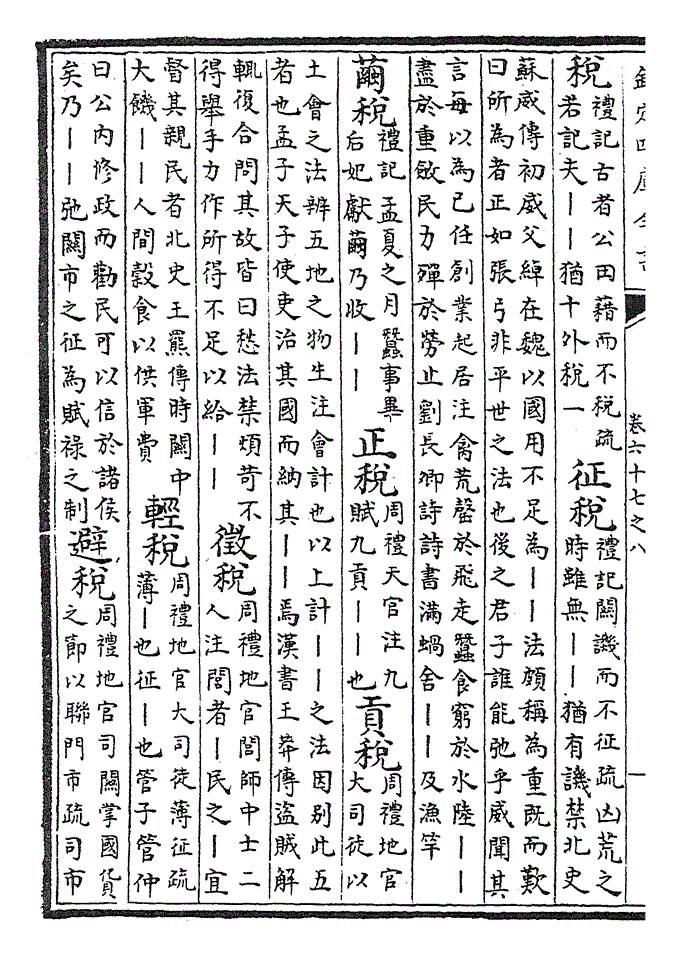 欽定四庫全書
卷六十七之八
一
税禮記古者公田藉而不税疏
若記夫——猶十外税一
征税禮記關譏而不征疏凶荒之
時雖無——猶有譏禁北史
蘇威傳初威父綽在魏以國用不足為——法頗稱為重既而歎
曰所為者正如張弓非平世之法也後之君子誰能弛乎威聞其
言每以為己任創業起居注禽荒罄於飛走蠶食窮於水陸——
盡於重斂民力殫於勞止劉長卿詩詩書滿蝸舍——及漁竿
繭税禮記孟夏之月蠶事畢
后妃獻繭乃收——
正税周禮天官注九
賦九貢——也
貢税周禮地官
大司徒以
土會之法辨五地之物生注會計也以上計——之法因别此五
者也孟子天子使吏治其國而納其——焉漢書王莽傳盜賊解
輒復合問其故皆曰愁法禁煩苛不
得舉手力作所得不足以給——
徵税周禮地官閭師中士二
人注閭者—民之—宜
督其親民者北史王羆傳時關中
大饑——人間穀食以供軍費
輕税周禮地官大司徒薄征疏
薄—也征—也管子管仲
曰公内修政而勸民可以信於諸侯
矣乃——弛關市之征為賦祿之制
避税周禮地官司關掌國貨
之節以聯門市疏司市